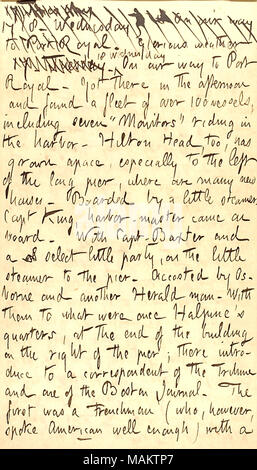 17/18. Wednesday. On our way
to Port Royal. Glorious weather
18 Wednesday
On our way to Port
Royal. Got there in the afternoon
and found a fleet of over 100 vessels,
including seven "Monitors" riding in
the harbor. Hilton Head, too, has
grown apace, especially to the left
of the long pier, where are many new
houses. Boarded by a little steamer.
Capt King, harbor-master came on
board. With Capt. Baxter and
a select little party, on the little
steamer to the pier. Accosted by Os-
borne and another Herald man. With
them to what were once Halpine's
quarters, at the end of the building
on the right of the pier; there intro-
duce to a correspondent of the Tribune
and one of the Boston Journal. The
first was a Frenchman (who, however,
spoke American well enough) with a
alamy
Image ID: MAKTP7
www.alamy.com